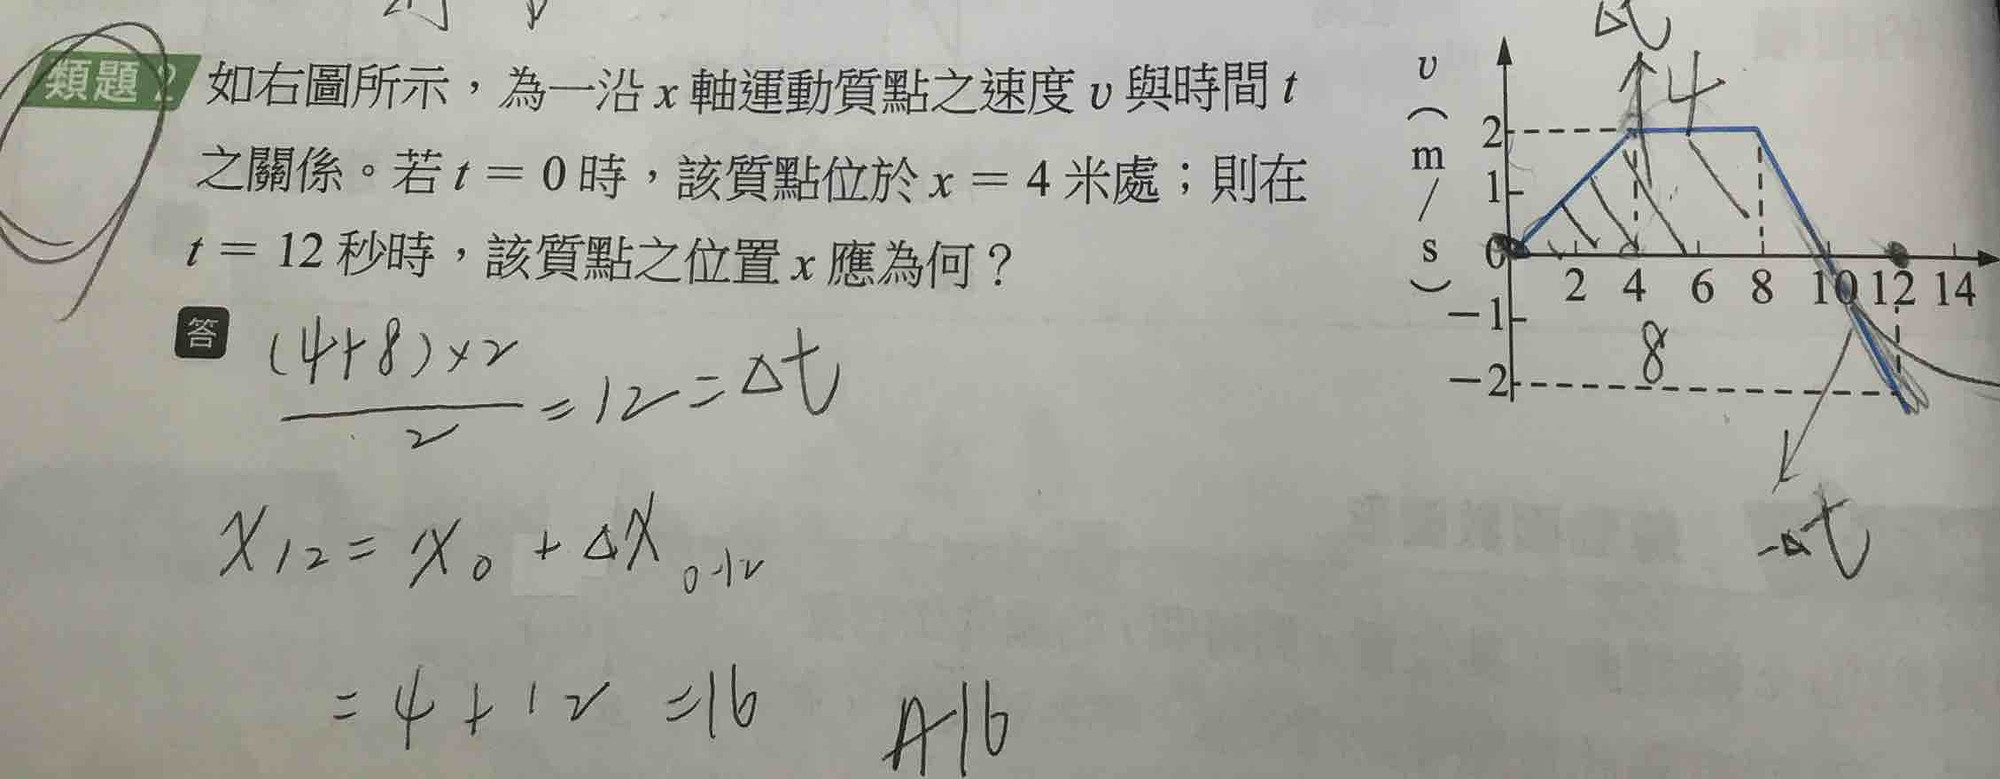 類題2 如右圖所示，為一沿 x 軸運動質點之速度 v 與時間 t
之關係。若 t = 0 時，該質點位於 x = 4 米處；則在
t = 12 秒時，該質點之位置 x 應為何？
答
(4+8)×2
2
=12=Δt
x12 = x0 + Δx 0-12
= 4 + 12 = 16
A16
v(m/s)
2
1
0
-1
-2
2 4 6 8 10 12 14
4
8
-Δt